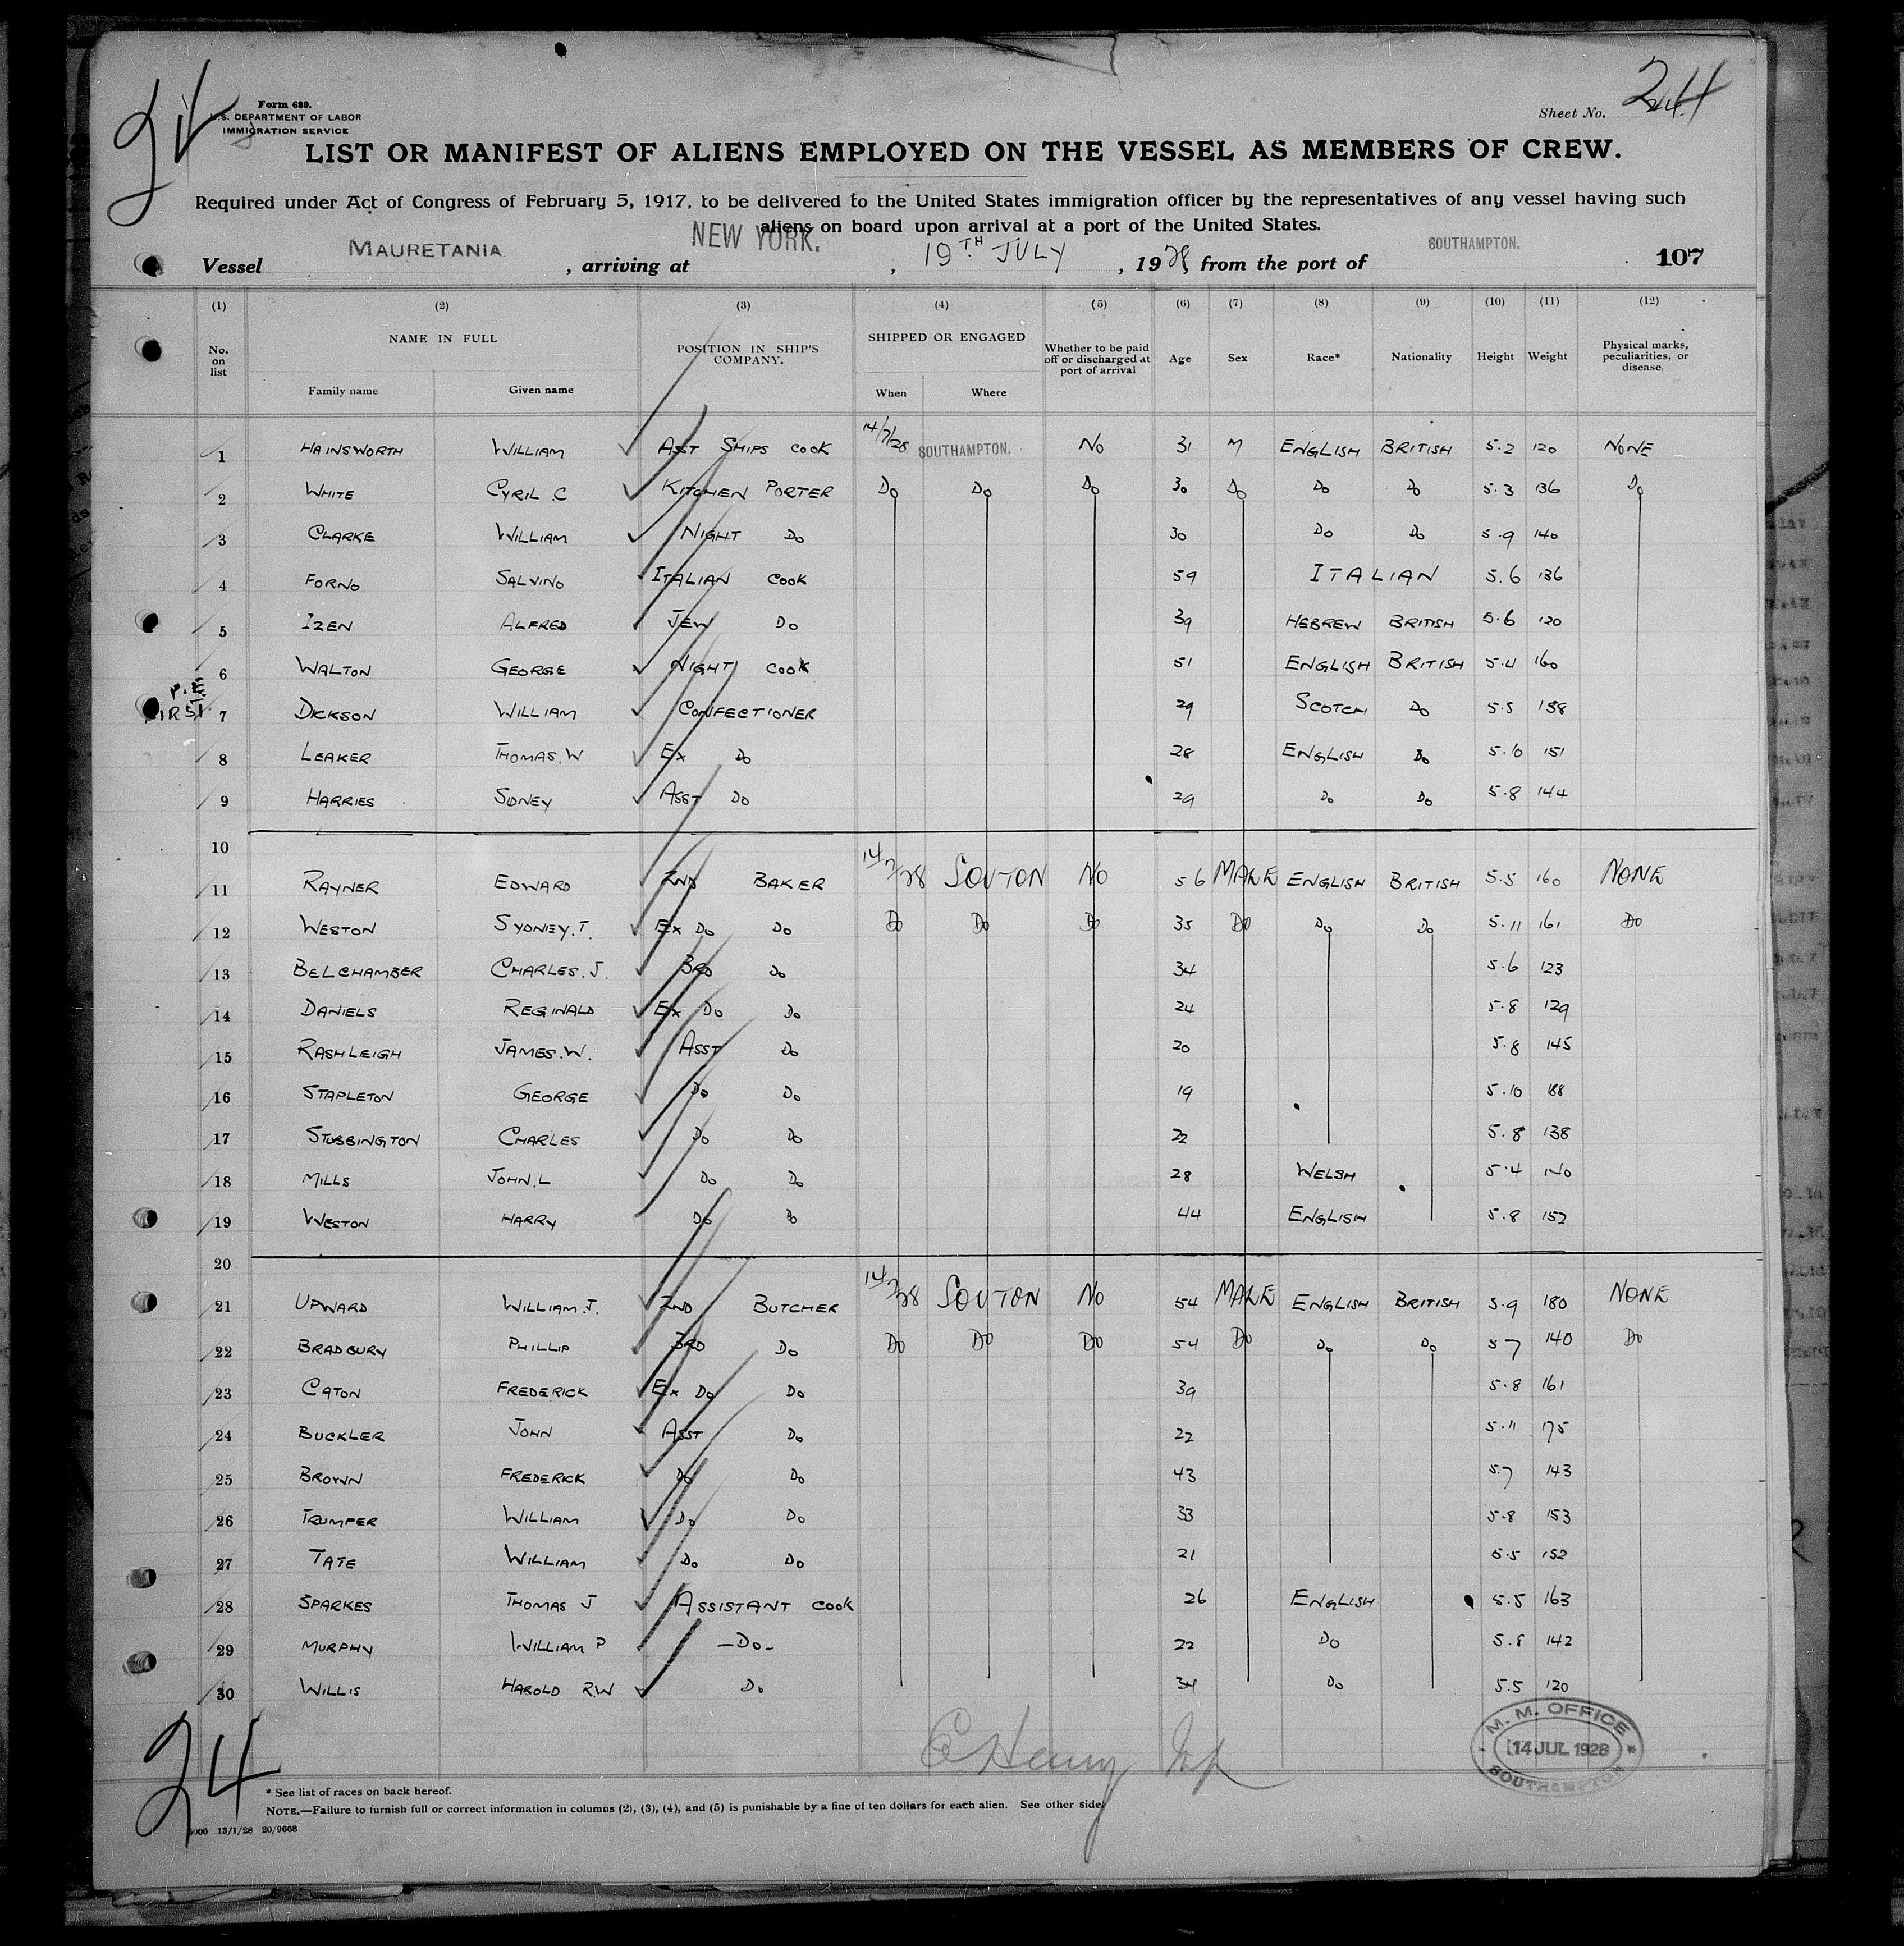 24
Form 680.
U.S. DEPARTMENT OF LABOR
IMMIGRATION SERVICE
Sheet No. 24
LIST OR MANIFEST OF ALIENS EMPLOYED ON THE VESSEL AS MEMBERS OF CREW.
Required under Act of Congress of February 5, 1917, to be delivered to the United States immigration officer by the representatives of any vessel having such
aliens on board upon arrival at a port of the United States.
Vessel MAURETANIA, arriving at NEW YORK., 19TH JULY, 1928 from the port of SOUTHAMPTON. 107
(1) (2) (3) (4) (5) (6) (7) (8) (9) (10) (11) (12)
No. on list NAME IN FULL POSITION IN SHIP'S COMPANY. SHIPPED OR ENGAGED Whether to be paid off or discharged at port of arrival Age Sex Race* Nationality Height Weight Physical marks, peculiarities, or disease.
Family name Given name When Where
1 HAINSWORTH WILLIAM ASST SHIPS COOK 14/7/28 SOUTHAMPTON. NO 31 M ENGLISH BRITISH 5.2 120 NONE
2 WHITE CYRIL C KITCHEN PORTER DO DO DO 30 DO DO DO 5.3 136 DO
3 CLARKE WILLIAM NIGHT DO 30 DO DO 5.9 140
4 FORNO SALVINO ITALIAN COOK 59 ITALIAN 5.6 136
5 IZEN ALFRED JEW DO 39 HEBREW BRITISH 5.6 120
6 WALTON GEORGE NIGHT COOK 51 ENGLISH BRITISH 5.4 160
FIRST
7 DICKSON WILLIAM CONFECTIONER 29 SCOTCH DO 5.5 158
8 LEAKER THOMAS.W EX DO 28 ENGLISH DO 5.10 151
9 HARRIES SIDNEY ASST DO 29 DO DO 5.8 144
10
11 RAYNER EDWARD 2ND BAKER 14/7/28 SOUTON NO 56 MALE ENGLISH BRITISH 5.5 160 NONE
12 WESTON SYDNEY.T. EX DO DO DO DO DO 35 DO DO DO 5.11 161 DO
13 BELCHAMBER CHARLES.J. 3RD DO 34 5.6 123
14 DANIELS REGINALD EX DO DO 24 5.8 129
15 RASHLEIGH JAMES.W. ASST DO 20 5.8 145
16 STAPLETON GEORGE DO DO 19 5.10
17 STUBBINGTON CHARLES DO DO 22 5.8 138
18 MILLS JOHN.L DO DO 28 WELSH 5.4 140
19 WESTON HARRY DO DO 44 ENGLISH 5.8 152
20
21 UPWARD WILLIAM.J. 2ND BUTCHER 14/7/28 SOUTON NO 54 MALE ENGLISH BRITISH 5.9 180 NONE
22 BRADBURY PHILLIP 3RD DO DO DO DO 54 DO DO DO 5 7 140 DO
23 CATON FREDERICK EX DO DO 39 5.8 161
24 BUCKLER JOHN ASST DO 22 5.11 175
25 BROWN FREDERICK DO DO 43 5.7 143
26 TRUMPER WILLIAM DO DO 33 5.8 153
27 TATE WILLIAM DO DO 21 5.5 152
28 SPARKES THOMAS J ASSISTANT COOK 26 ENGLISH 5.5 163
29 MURPHY WILLIAM P -DO- 22 DO 5.8 142
30 WILLIS HAROLD R.W DO 34 DO 5.5 120
M. M. OFFICE
14 JUL 1928
SOUTHAMPTON
24
* See list of races on back hereof.
NOTE.—Failure to furnish full or correct information in columns (2), (3), (4), and (5) is punishable by a fine of ten dollars for each alien. See other side.
5000 13/1/28 20/9668